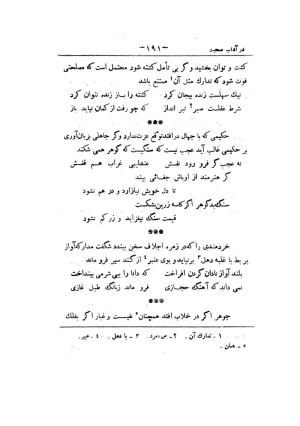 در آداب صحبت
- ۱۹۱ -
کشت و توان بخشید و گر بی تأمل کشته شود محتمل است که مصلحتی
فوت شود که تدارک مثل آن۱ ممتنع باشد
نیک سهلست زنده بیجان کرد کشته را باز زنده نتوان کرد
شرط عقلست صبر۲ تیر انداز که چو رفت از کمان نیاید باز
***
حکیمی که با جهال درافتد توقع عزت ندارد و گر جاهلی بزبان‌آوری
بر حکیمی غالب آید عجب نیست که سنگیست که گوهر همی شکند
نه عجب گر فرو رود نفسش عندلیبی غراب هم قفسش
گر هنرمند از اوباش جفائی بیند
تا دل خویش نیازارد و درهم نشود
سنگ بدگوهر اگر کاسه زرین بشکست
قیمت سنگ نیفزاید و زر کم نشود
***
خردمندی را که در زمره اجلاف سخن ببندد شگفت مدار که آواز
بر بط با غلبه دهل۳ برنیاید و بوی عنبر۴ از گند سیر فرو ماند
بلند آواز نادان گردن افراخت که دانا را ببی شرمی بینداخت
نمی داند که آهنگ حجازی فرو ماند ز بانگ طبل غازی
***
جوهر اگر در خلاب افتد همچنان۵ نفیست و غبار اگر بفلک
۱ـ تدارک آن. ۲ـ مرد. ۳ـ با دهل. ۴ـ عبیر.
۵ـ همان.